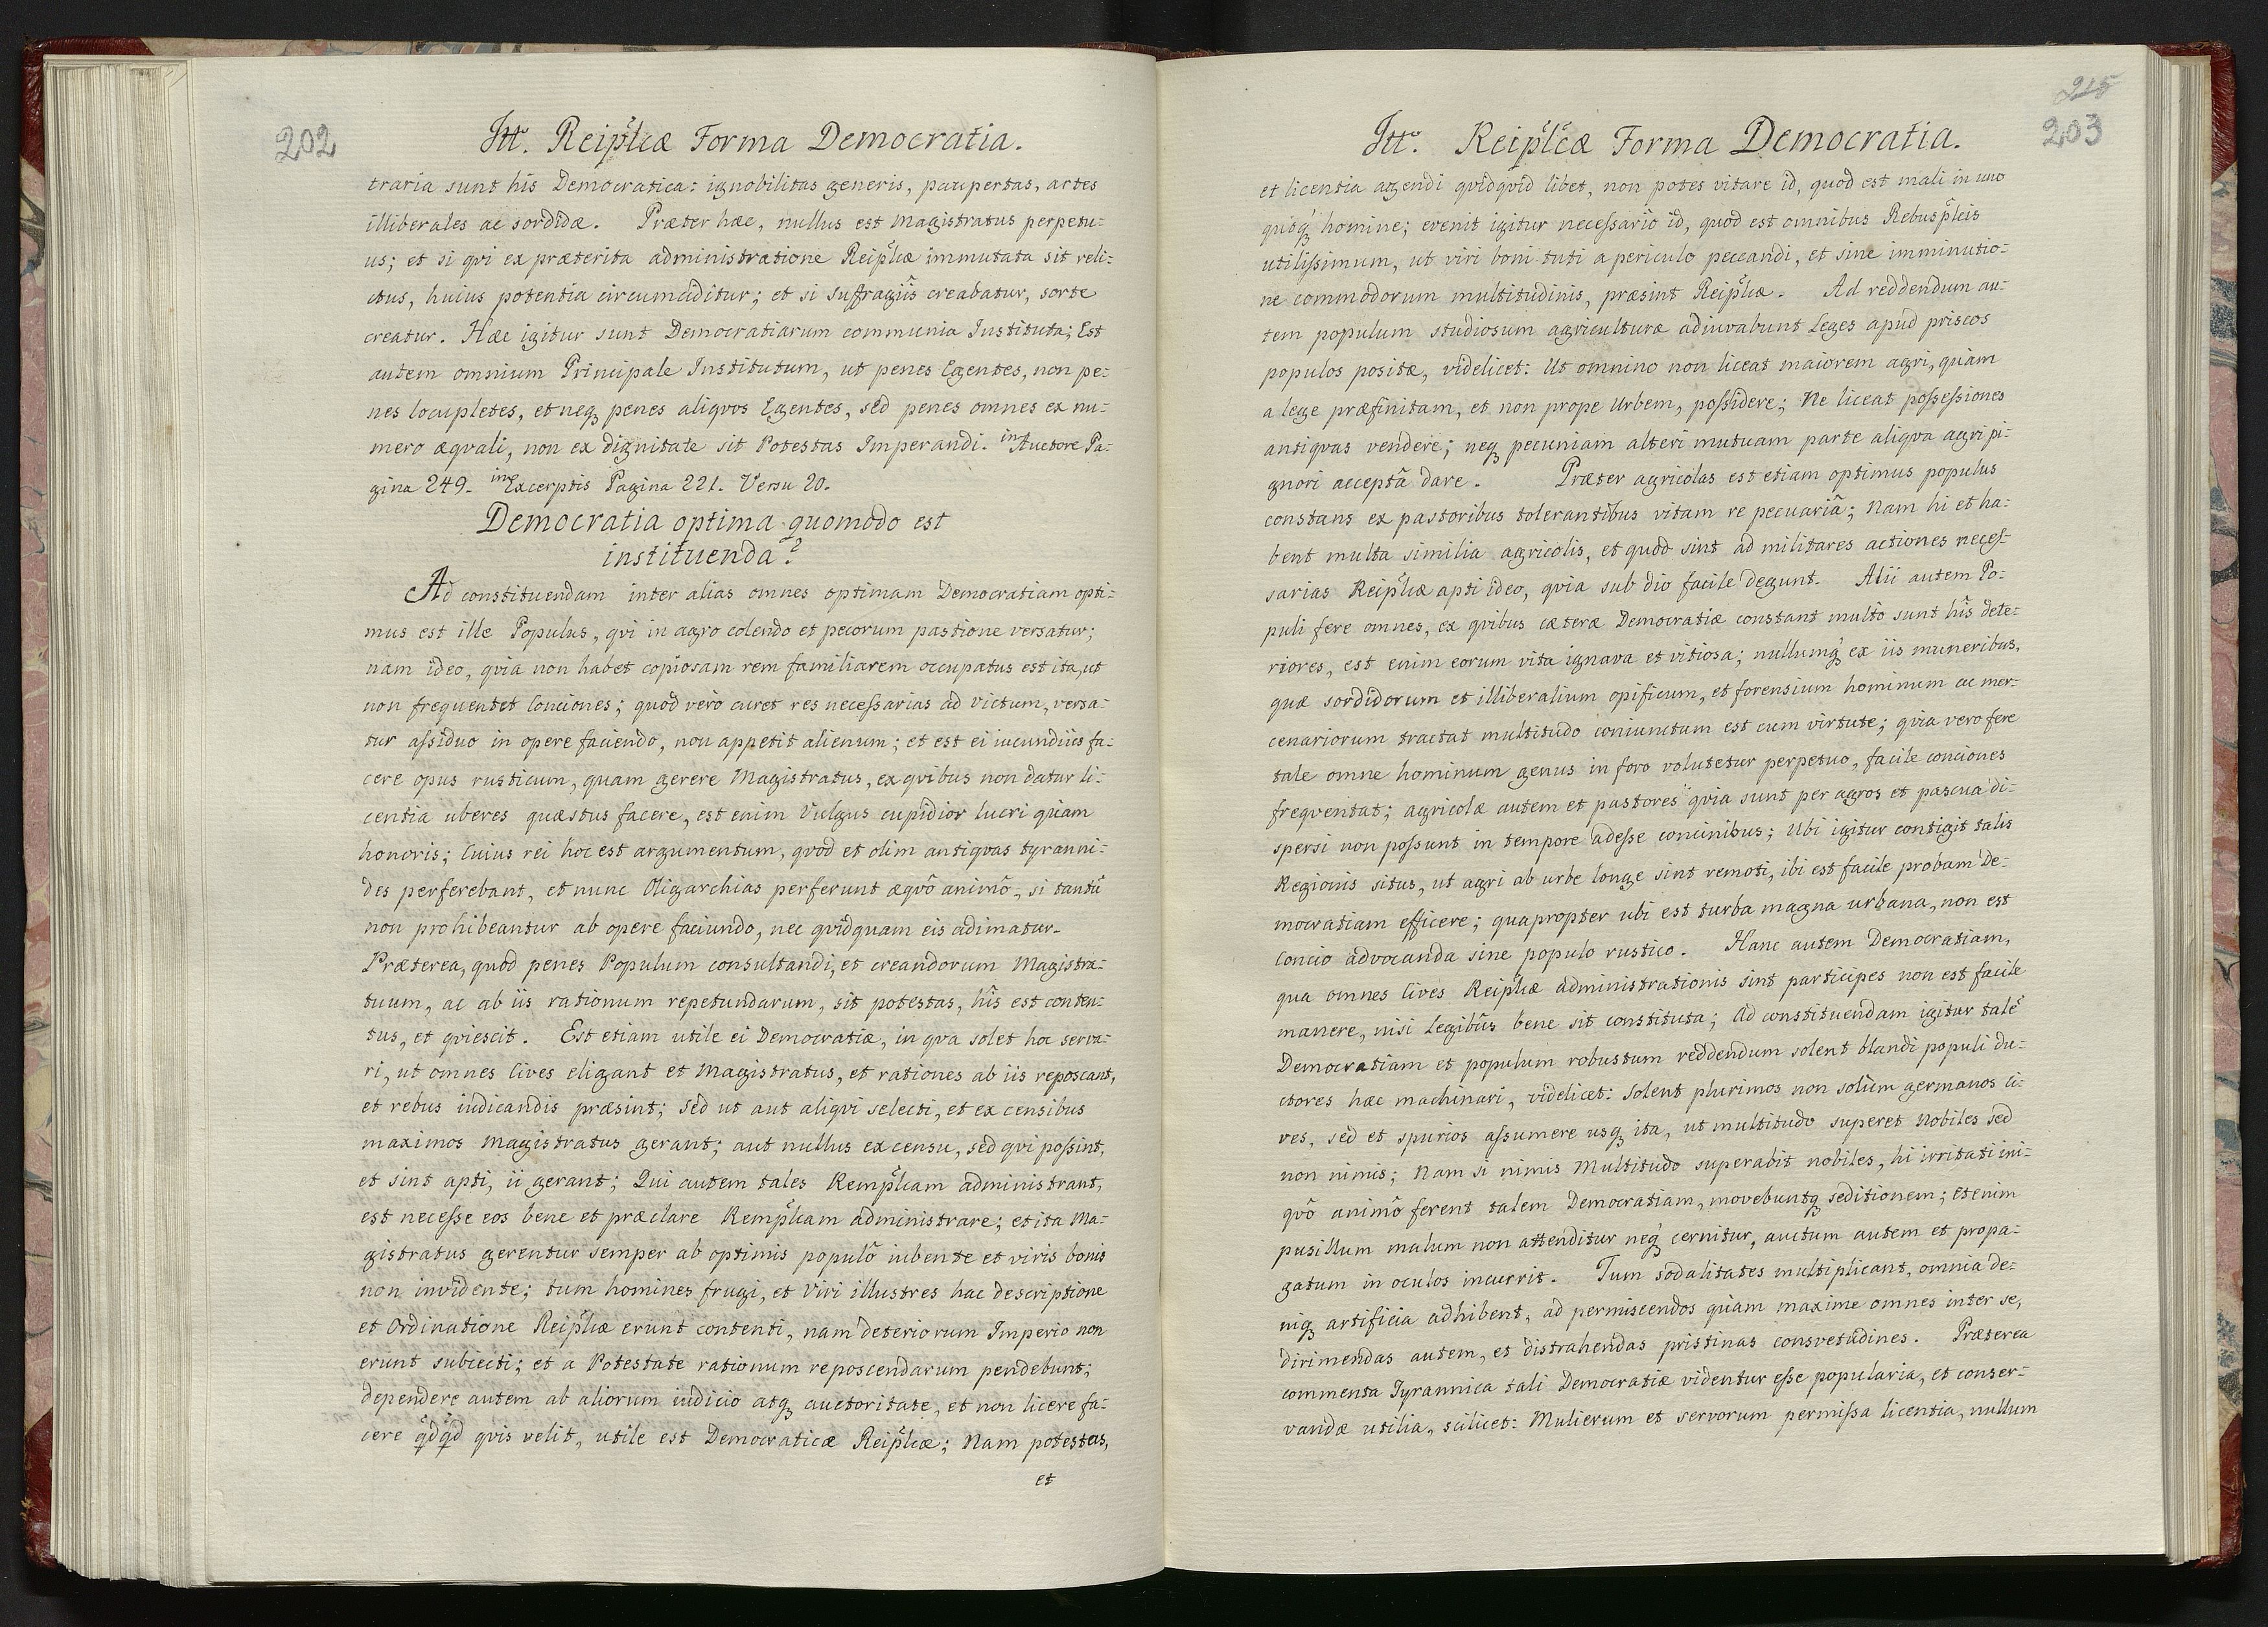 202
Itt. Reiplcæ Forma Democratia.
traria sunt his Democratica: ignobilitas generis, paupertas, artes
illiberales ac sordidæ. Præter hæc, nullus est Magistratus perpetu-
us; et si qvi ex præterita administratione Reiplcæ immutata sit reli-
ctus, huius potentia circumciditur; et si suffragiis creabatur, sorte
creatur. Hæc igitur sunt Democratiarum communia Instituta; Est
autem omnium Principale Institutum, ut penes Egentes, non pe-
nes locupletes, et neqꝫ penes aliqvos Egentes, sed penes omnes ex nu-
mero æqvali, non ex dignitate sit Potestas Imperandi. in Auctore Pa-
gina 249. in Excerptis Pagina 221. Versu 20.
Democratia optima quomodo est
instituenda?
Ad constituendam inter alias omnes optimam Democratiam opti-
mus est ille Populus, qvi in agro colendo et pecorum pastione versatur;
nam ideo, qvia non habet copiosam rem familiarem occupatus est ita, ut
non frequentet Conciones; quod vero curet res necessarias ad victum, versa-
tur assiduo in opere faciendo, non appetit alienum; et est ei iucundius fa-
cere opus rusticum, quam gerere Magistratus, ex qvibus non datur li-
centia uberes quæstus facere, est enim Vulgus cupidior lucri quam
honoris; Cuius rei hoc est argumentum, qvod et olim antiqvas tyranni-
des perferebant, et nunc Oligarchias perferunt æqvô animô, si tantũ
non prohibeantur ab opere faciundo, nec qvidquam eis adimatur.
Præterea, quod penes Populum consultandi, et creandorum Magistra-
tuum, ac ab iis rationum repetundarum, sit potestas, hîs est conten-
tus, et qviescit. Est etiam utile ei Democratiæ, in qva solet hoc serva-
ri, ut omnes Cives eligant et Magistratus, et rationes ab iis reposcant,
et rebus iudicandis præsint; sed ut aut aliqvi selecti, et ex censibus
maximos Magistratus gerant; aut nullus ex censu, sed qvi possint,
et sint apti, ii gerant; Qui autem tales Remplcam administrant,
est necesse eos bene et præclare Remplcam administrare; et ita Ma-
gistratus gerentur semper ab optimis populô iubente et viris bonis
non invidente; tum homines frugi, et Viri illustres hac descriptione
et Ordinatione Reiplcæ erunt contenti, nam deteriorum Imperio non
erunt subiecti; et a Potestate rationum reposcendarum pendebunt;
dependere autem ab aliorum iudicio atqꝫ auctoritate, et non licere fa-
cere qdqd qvis velit, utile est Democraticæ Reiplcæ; Nam potestas,
et
215
203
Itt. Reiplcæ Forma Democratia.
et licentia agendi qvidqvid libet, non potes vitare id, quod est mali in uno
quoqꝫ homine; evenit igitur necessario id, quod est omnibus Rebusplcis
utilissimum, ut viri boni tuti a periculo peccandi, et sine imminutio-
ne commodorum multitudinis, præsint Reiplcæ. Ad reddendum au-
tem populum studiosum agriculturæ adiuvabunt Leges apud priscos
populos positæ, videlicet: Ut omnino non liceat maiorem agri, quàm
a lege præfinitam, et non prope Urbem, possidere; Ne liceat possessiones
antiqvas vendere; neqꝫ pecuniam alteri mutuam parte aliqva agri pi-
gnori acceptâ dare. Præter agricolas est etiam optimus populus
constans ex pastoribus tolerantibus vitam re pecuariâ; Nam hi et ha-
bent multa similia agricolis, et quod sint ad militares actiones neces-
sarias Reiplcæ apti ideo, qvia sub dio facile degunt. Alii autem Po-
puli fere omnes, ex qvibus cæteræ Democratiæ constant multo sunt hîs dete-
riores, est enim eorum vita ignava et vitiosa; nullumqꝫ ex iis muneribus,
quæ sordidorum et illiberalium opificum, et forensium hominum ac mer-
cenariorum tractat multitudo coniunctum est cum virtute; qvia vero fere
tale omne hominum genus in foro volutetur perpetuo, facile conciones
freqventat; agricolæ autem et pastores qvia sunt per agros et pascua di-
spersi non possunt in tempore adesse concinibus; Ubi igitur contigit talis
Regionis situs, ut agri ab urbe longe sint remoti, ibi est facile probam De-
mocratiam efficere; quapropter ubi est turba magna urbana, non est
Concio advocanda sine populo rustico. Hanc autem Democratiam,
qua omnes Cives Reiplcæ administrationis sint participes non est facile
manere, nisi Legibûs bene sit constituta; Ad constituendam igitur talẽ
Democratiam et populum robustum reddendum solent blandi populi du-
ctores hæc machinari, videlicet: Solent plurimos non solùm germanos Ci-
ves, sed et spurios assumere usqꝫ ita, ut multitudo superet Nobiles sed
non nimis; Nam si nimis Multitudo superabit nobiles, hi irritati ini-
qvô animô ferent talem Democratiam, movebuntqꝫ seditionem; etenim
pusillum malum non attenditur neqꝫ cernitur, auctum autem et propa-
gatum in oculos incurrit. Tum sodalitates multiplicant, omnia de-
niqꝫ artificia adhibent, ad permiscendos quàm maxime omnes inter se,
dirimendas autem, et distrahendas pristinas consvetudines. Præterea
commenta Tyrannica tali Democratiæ videntur esse popularia, et conser-
vandæ utilia, scilicet: Mulierum et servorum permissa licentia, nullum